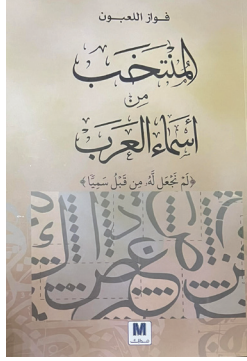 فواز اللعبون
المنتخب
من
أسماء العرب
﴿لَمْ نَجْعَل لَّهُ مِن قَبْلُ سَمِيًّا﴾
M